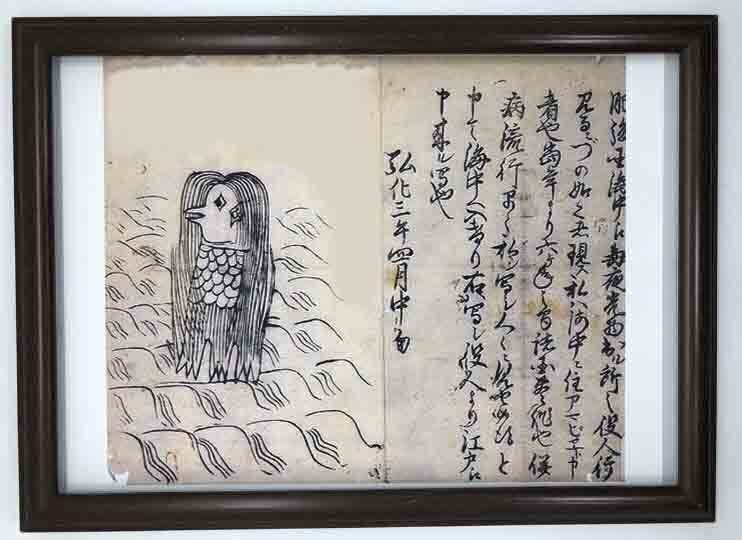 肥後国海中江毎夜光物出ル所之役人行
見るニづの如之者現ス私ハ海中ニ住アマビヱト申
者也当年より六ヶ年之間諸国豊作也併
病流行早々私ヲ写シ人々ニ見セ候得と
申て海中へ入けり右写シ役人より江戸江
申来ル写也
弘化三年四月中旬